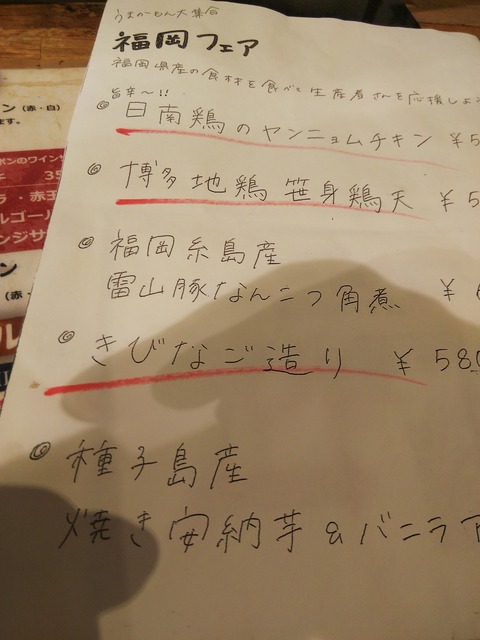 うまかーもん大集合
福岡フェア
福岡県産の食材を食べて生産者さんを応援しよう
旨辛〜!!
◎ 日南鶏のヤンニョムチキン ¥5
◎ 博多地鶏 笹身鶏天 ¥5
◎ 福岡糸島産
雷山豚なんこつ角煮 ¥
◎ きびなご造り ¥580
◎ 種子島産
焼き安納芋&バニラア
ン (赤・白)
ます。
ポンのワイン
35
ラ・赤玉
ルゴール
ンジサ
ン
(赤・
ル